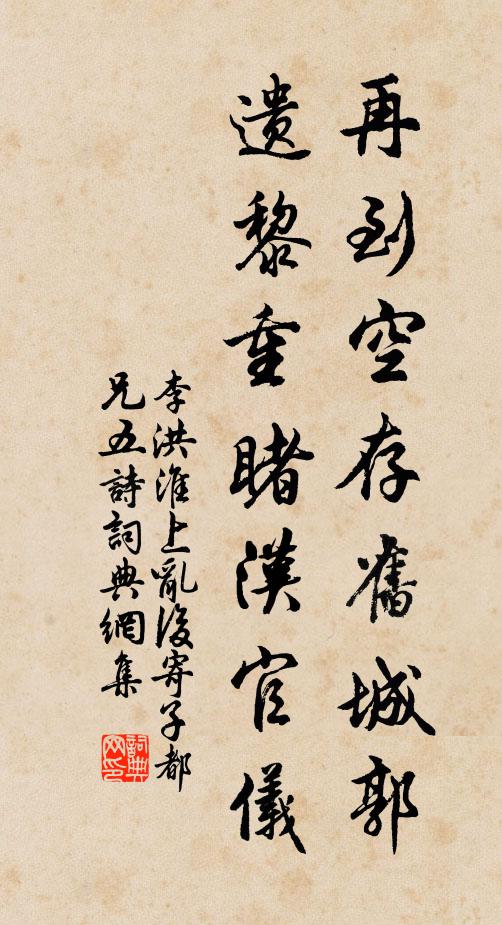 再到空存舊城郭
遺黎重睹漢官儀
李洪淮上亂後寄子都
兄五詩詞典網集
詞典
网印